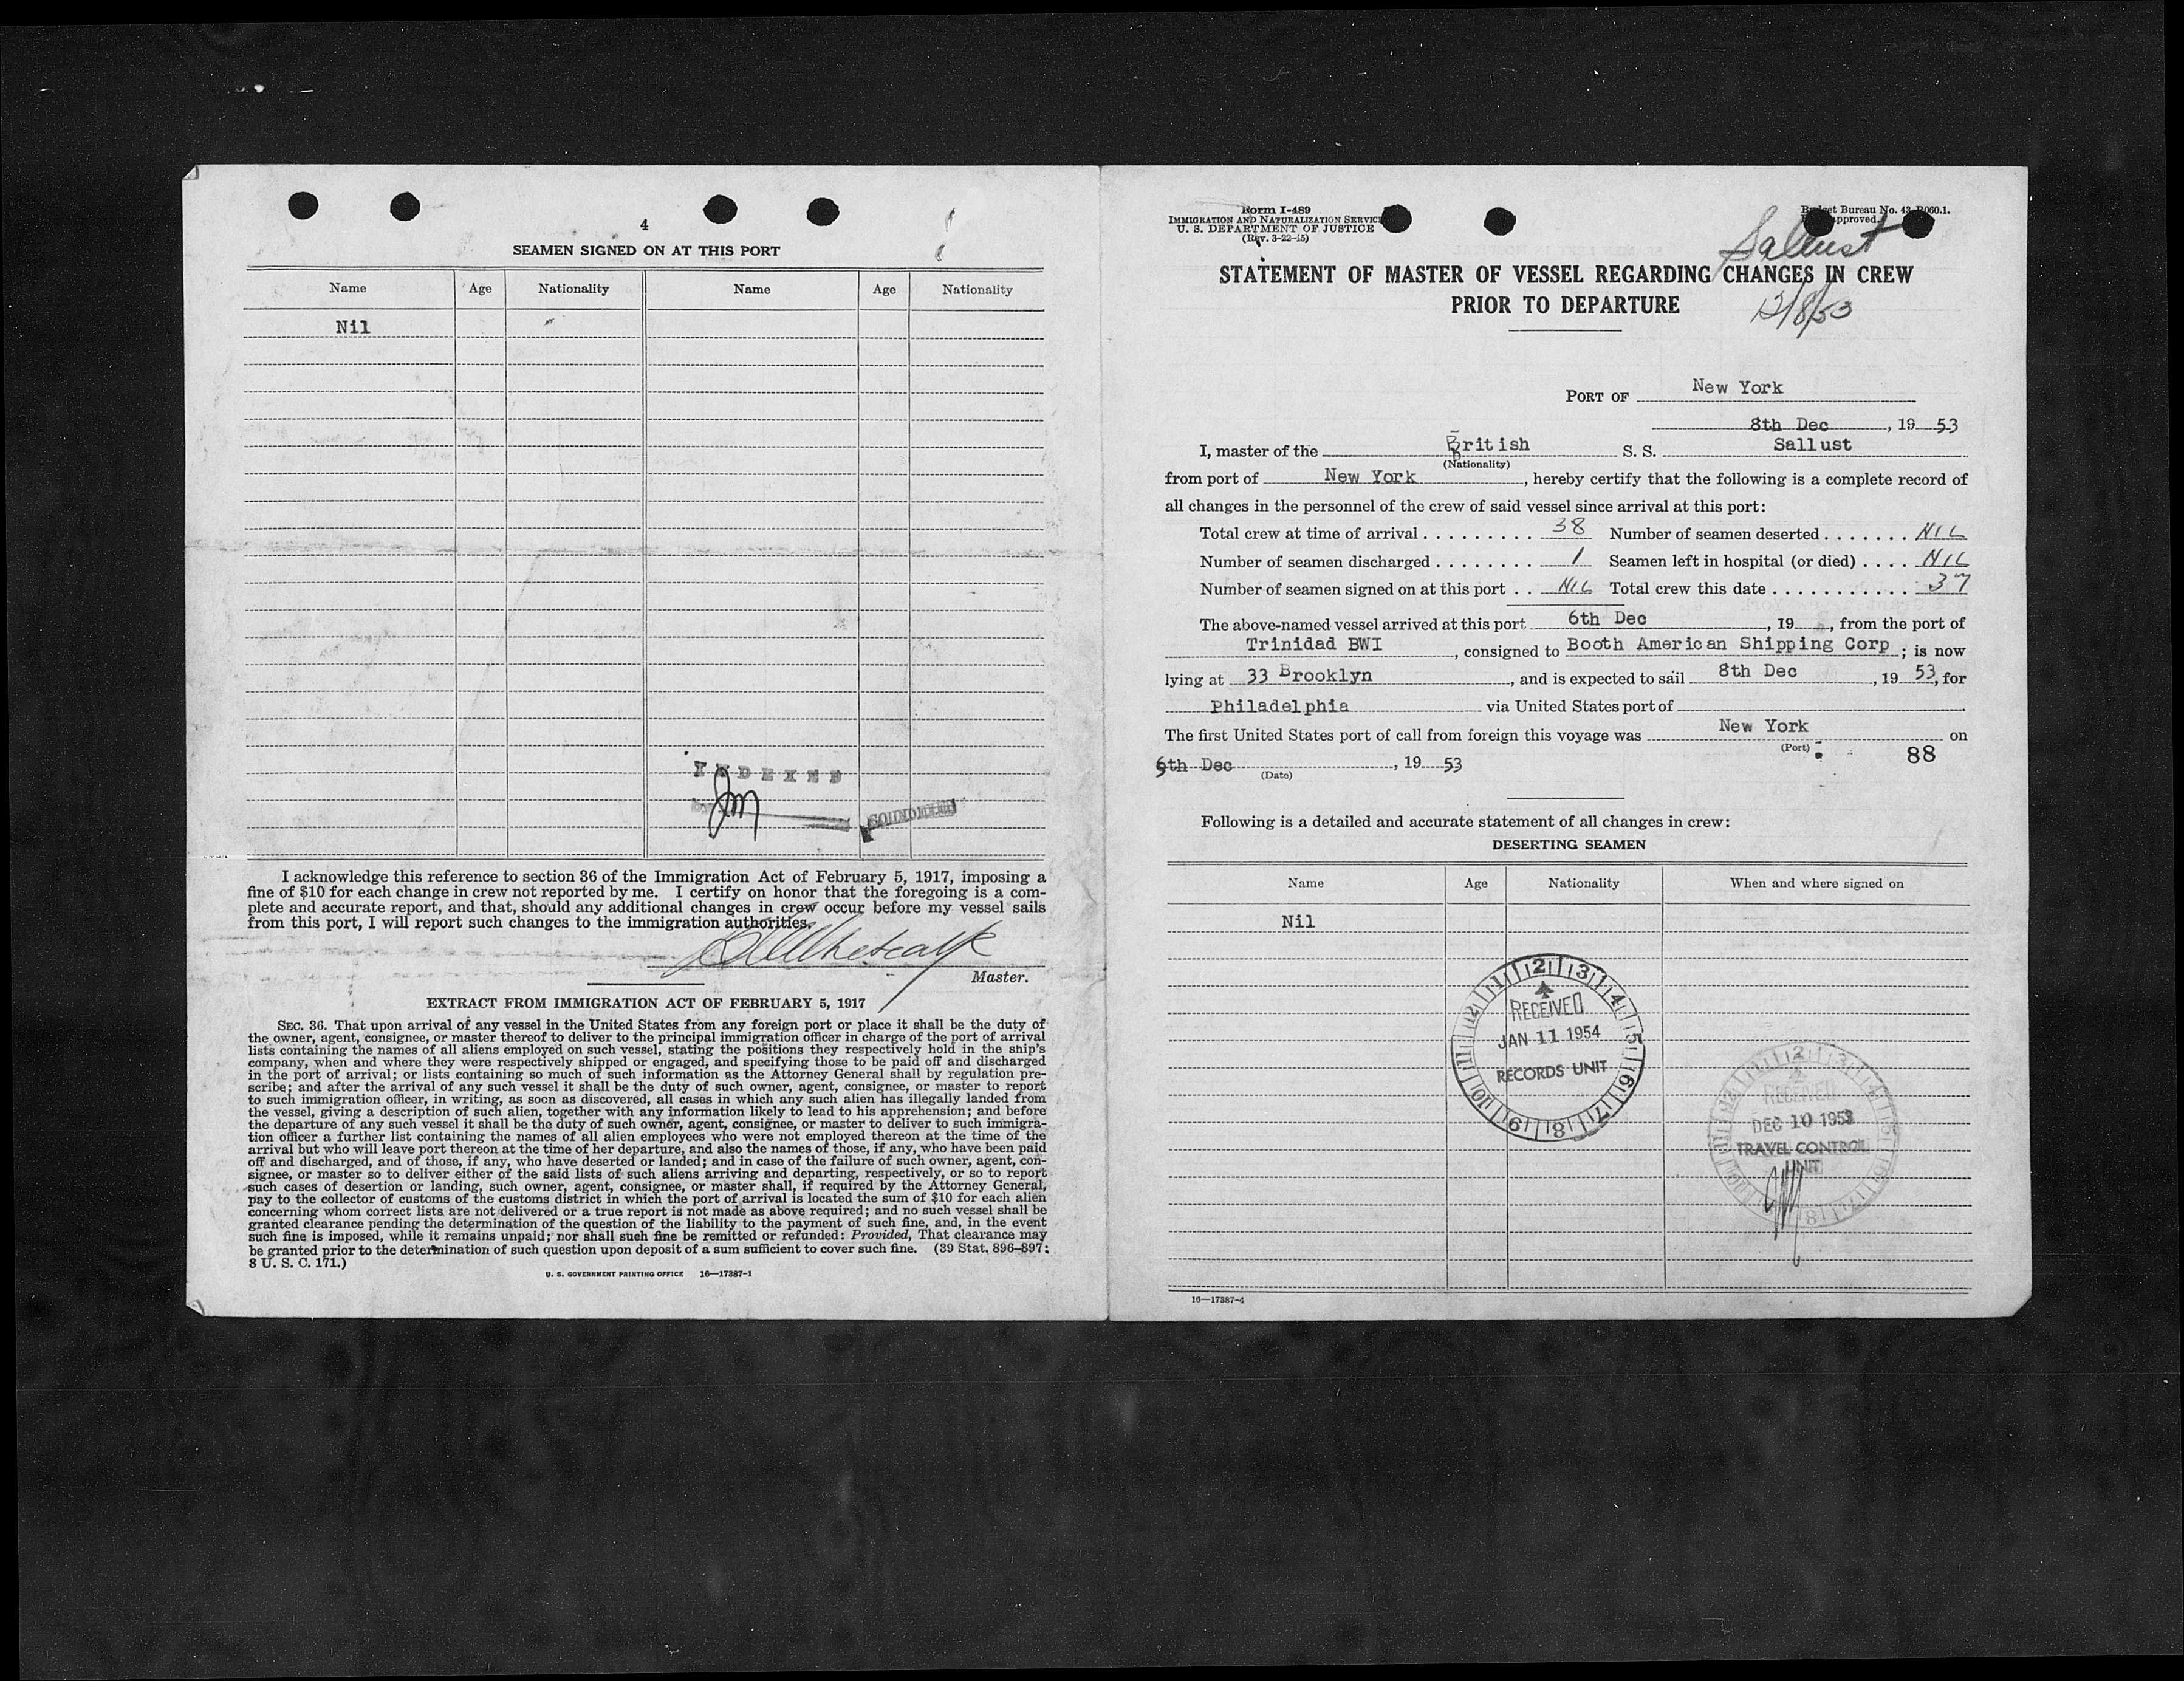 4
SEAMEN SIGNED ON AT THIS PORT
Name Age Nationality Name Age Nationality
Nil
INDEXED
I acknowledge this reference to section 36 of the Immigration Act of February 5, 1917, imposing a
fine of $10 for each change in crew not reported by me. I certify on honor that the foregoing is a com-
plete and accurate report, and that, should any additional changes in crew occur before my vessel sails
from this port, I will report such changes to the immigration authorities.
Master.
EXTRACT FROM IMMIGRATION ACT OF FEBRUARY 5, 1917
SEC. 36. That upon arrival of any vessel in the United States from any foreign port or place it shall be the duty of
the owner, agent, consignee, or master thereof to deliver to the principal immigration officer in charge of the port of arrival
lists containing the names of all aliens employed on such vessel, stating the positions they respectively hold in the ship's
company, when and where they were respectively shipped or engaged, and specifying those to be paid off and discharged
in the port of arrival; or lists containing so much of such information as the Attorney General shall by regulation pre-
scribe; and after the arrival of any such vessel it shall be the duty of such owner, agent, consignee, or master to report
to such immigration officer, in writing, as soon as discovered, all cases in which any such alien has illegally landed from
the vessel, giving a description of such alien, together with any information likely to lead to his apprehension; and before
the departure of any such vessel it shall be the duty of such owner, agent, consignee, or master to deliver to such immigra-
tion officer a further list containing the names of all alien employees who were not employed thereon at the time of the
arrival but who will leave port thereon at the time of her departure, and also the names of those, if any, who have been paid
off and discharged, and of those, if any, who have deserted or landed; and in case of the failure of such owner, agent, con-
signee, or master so to deliver either of the said lists of such aliens arriving and departing, respectively, or so to report
such cases of desertion or landing, such owner, agent, consignee, or master shall, if required by the Attorney General,
pay to the collector of customs of the customs district in which the port of arrival is located the sum of $10 for each alien
concerning whom correct lists are not delivered or a true report is not made as above required; and no such vessel shall be
granted clearance pending the determination of the question of the liability to the payment of such fine, and, in the event
such fine is imposed, while it remains unpaid; nor shall such fine be remitted or refunded: Provided, That clearance may
be granted prior to the determination of such question upon deposit of a sum sufficient to cover such fine. (39 Stat. 896-897;
8 U. S. C. 171.)
U. S. GOVERNMENT PRINTING OFFICE 16—17387-1
Form I-489
IMMIGRATION AND NATURALIZATION SERVICE
U. S. DEPARTMENT OF JUSTICE
(Rev. 3-22-45)
Bureau No. 43-R060.1.
approved.
Sallust
STATEMENT OF MASTER OF VESSEL REGARDING CHANGES IN CREW
PRIOR TO DEPARTURE
12/8/53
PORT OF New York
8th Dec , 19 53
I, master of the British S. S. Sallust
(Nationality)
from port of New York , hereby certify that the following is a complete record of
all changes in the personnel of the crew of said vessel since arrival at this port:
Total crew at time of arrival 38 Number of seamen deserted NIL
Number of seamen discharged 1 Seamen left in hospital (or died) NIL
Number of seamen signed on at this port NIL Total crew this date 37
The above-named vessel arrived at this port 6th Dec , 19 , from the port of
Trinidad BWI , consigned to Booth American Shipping Corp ; is now
lying at 33 Brooklyn , and is expected to sail 8th Dec , 19 53, for
Philadelphia via United States port of
The first United States port of call from foreign this voyage was New York on
(Port)
6th Dec , 19 53 88
(Date)
Following is a detailed and accurate statement of all changes in crew:
DESERTING SEAMEN
Name Age Nationality When and where signed on
Nil
RECEIVED
JAN 11 1954
RECORDS UNIT
RECEIVED
DEC 10 1953
TRAVEL CONTROL
UNIT
16—17387-4